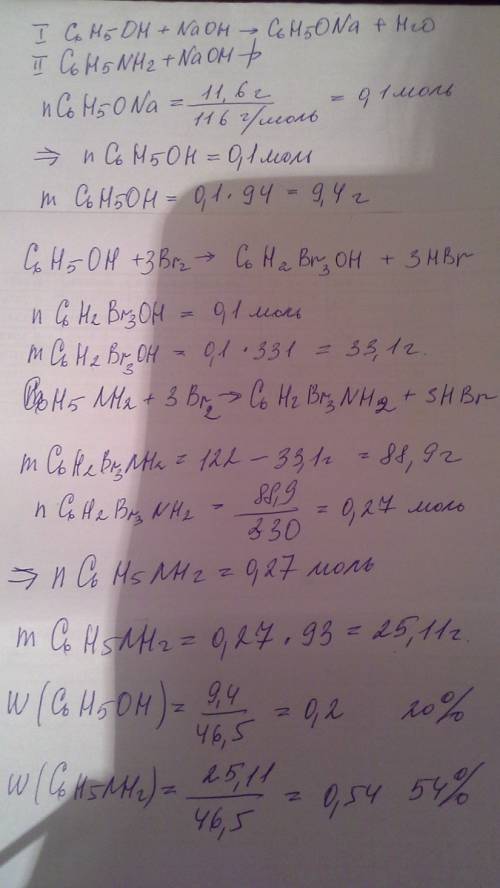 I C6H5OH + NaOH → C6H5ONa + H2O
II C6H5NH2 + NaOH ↛
n C6H5ONa = 11,6 г / 116 г/моль = 0,1 моль
⇒ n C6H5OH = 0,1 моль
m C6H5OH = 0,1 * 94 = 9,4 г
C6H5OH + 3Br2 → C6H2Br3OH + 3HBr
n C6H2Br3OH = 0,1 моль
m C6H2Br3OH = 0,1 * 331 = 33,1 г.
C6H5NH2 + 3Br2 → C6H2Br3NH2 + 3HBr
m C6H2Br3NH2 = 122 – 33,1г = 88,9 г
n C6H2Br3NH2 = 88,9 / 330 = 0,27 моль
⇒ n C6H5NH2 = 0,27 моль
m C6H5NH2 = 0,27 * 93 = 25,11 г.
W (C6H5OH) = 9,4 / 46,5 = 0,2 20%
W (C6H5NH2) = 25,11 / 46,5 = 0,54 54%